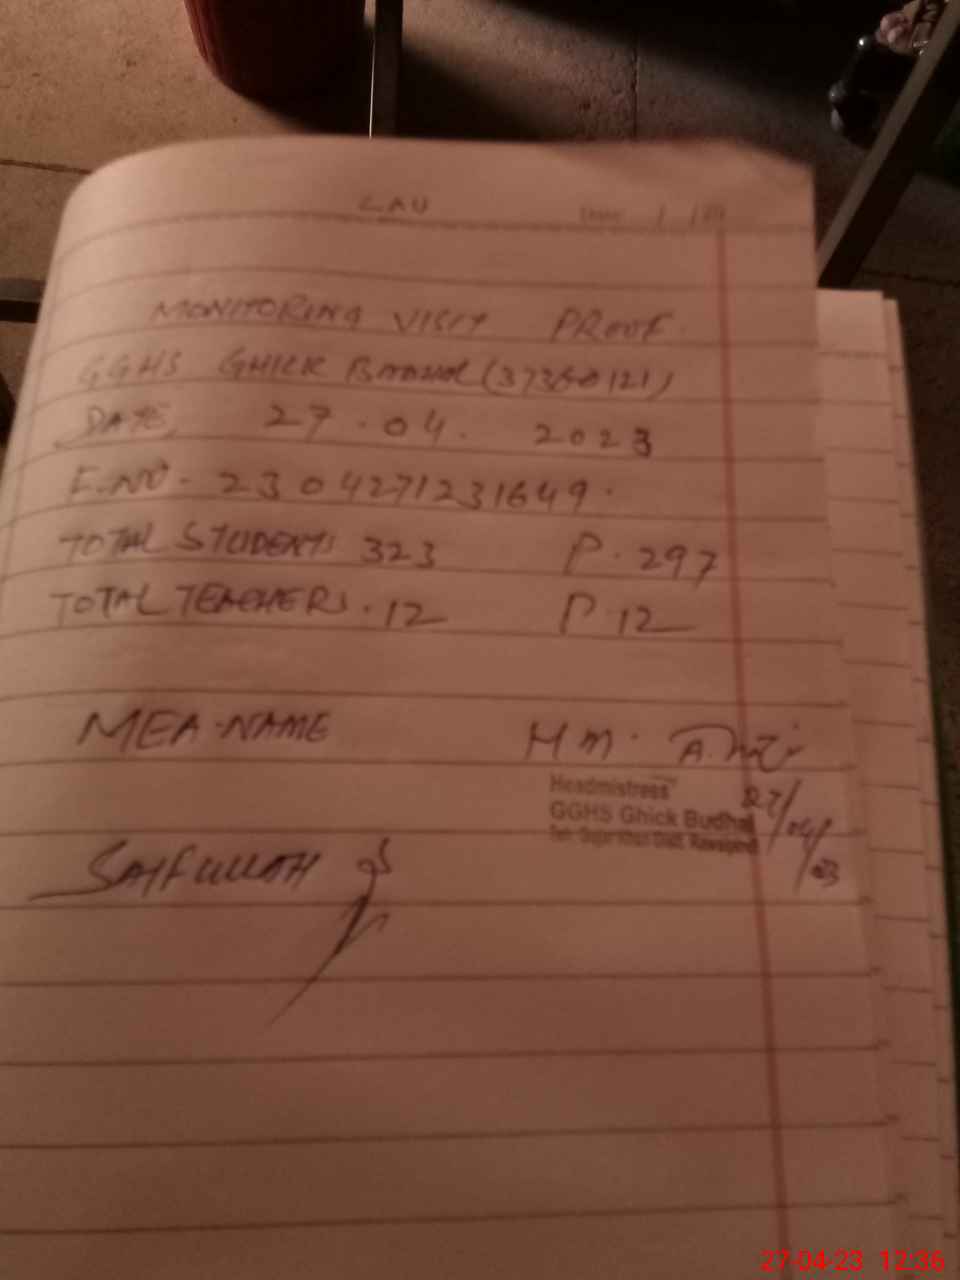 LAU
Date
MONITORING VISIT PROOF
GGHS GHICK BUDHAL (37360121)
DATE, 27.04.2023
E.NO - 2304271231649.
TOTAL STUDENTS 323 P.297
TOTAL TEACHERS.12 P.12
MEA-NAME H M.
Headmistress
GGHS Ghick Budhal
Teh: Gujar Khan Distt. Rawalpindi
27/04/
SAIFULLAH
27-04-23 12:36